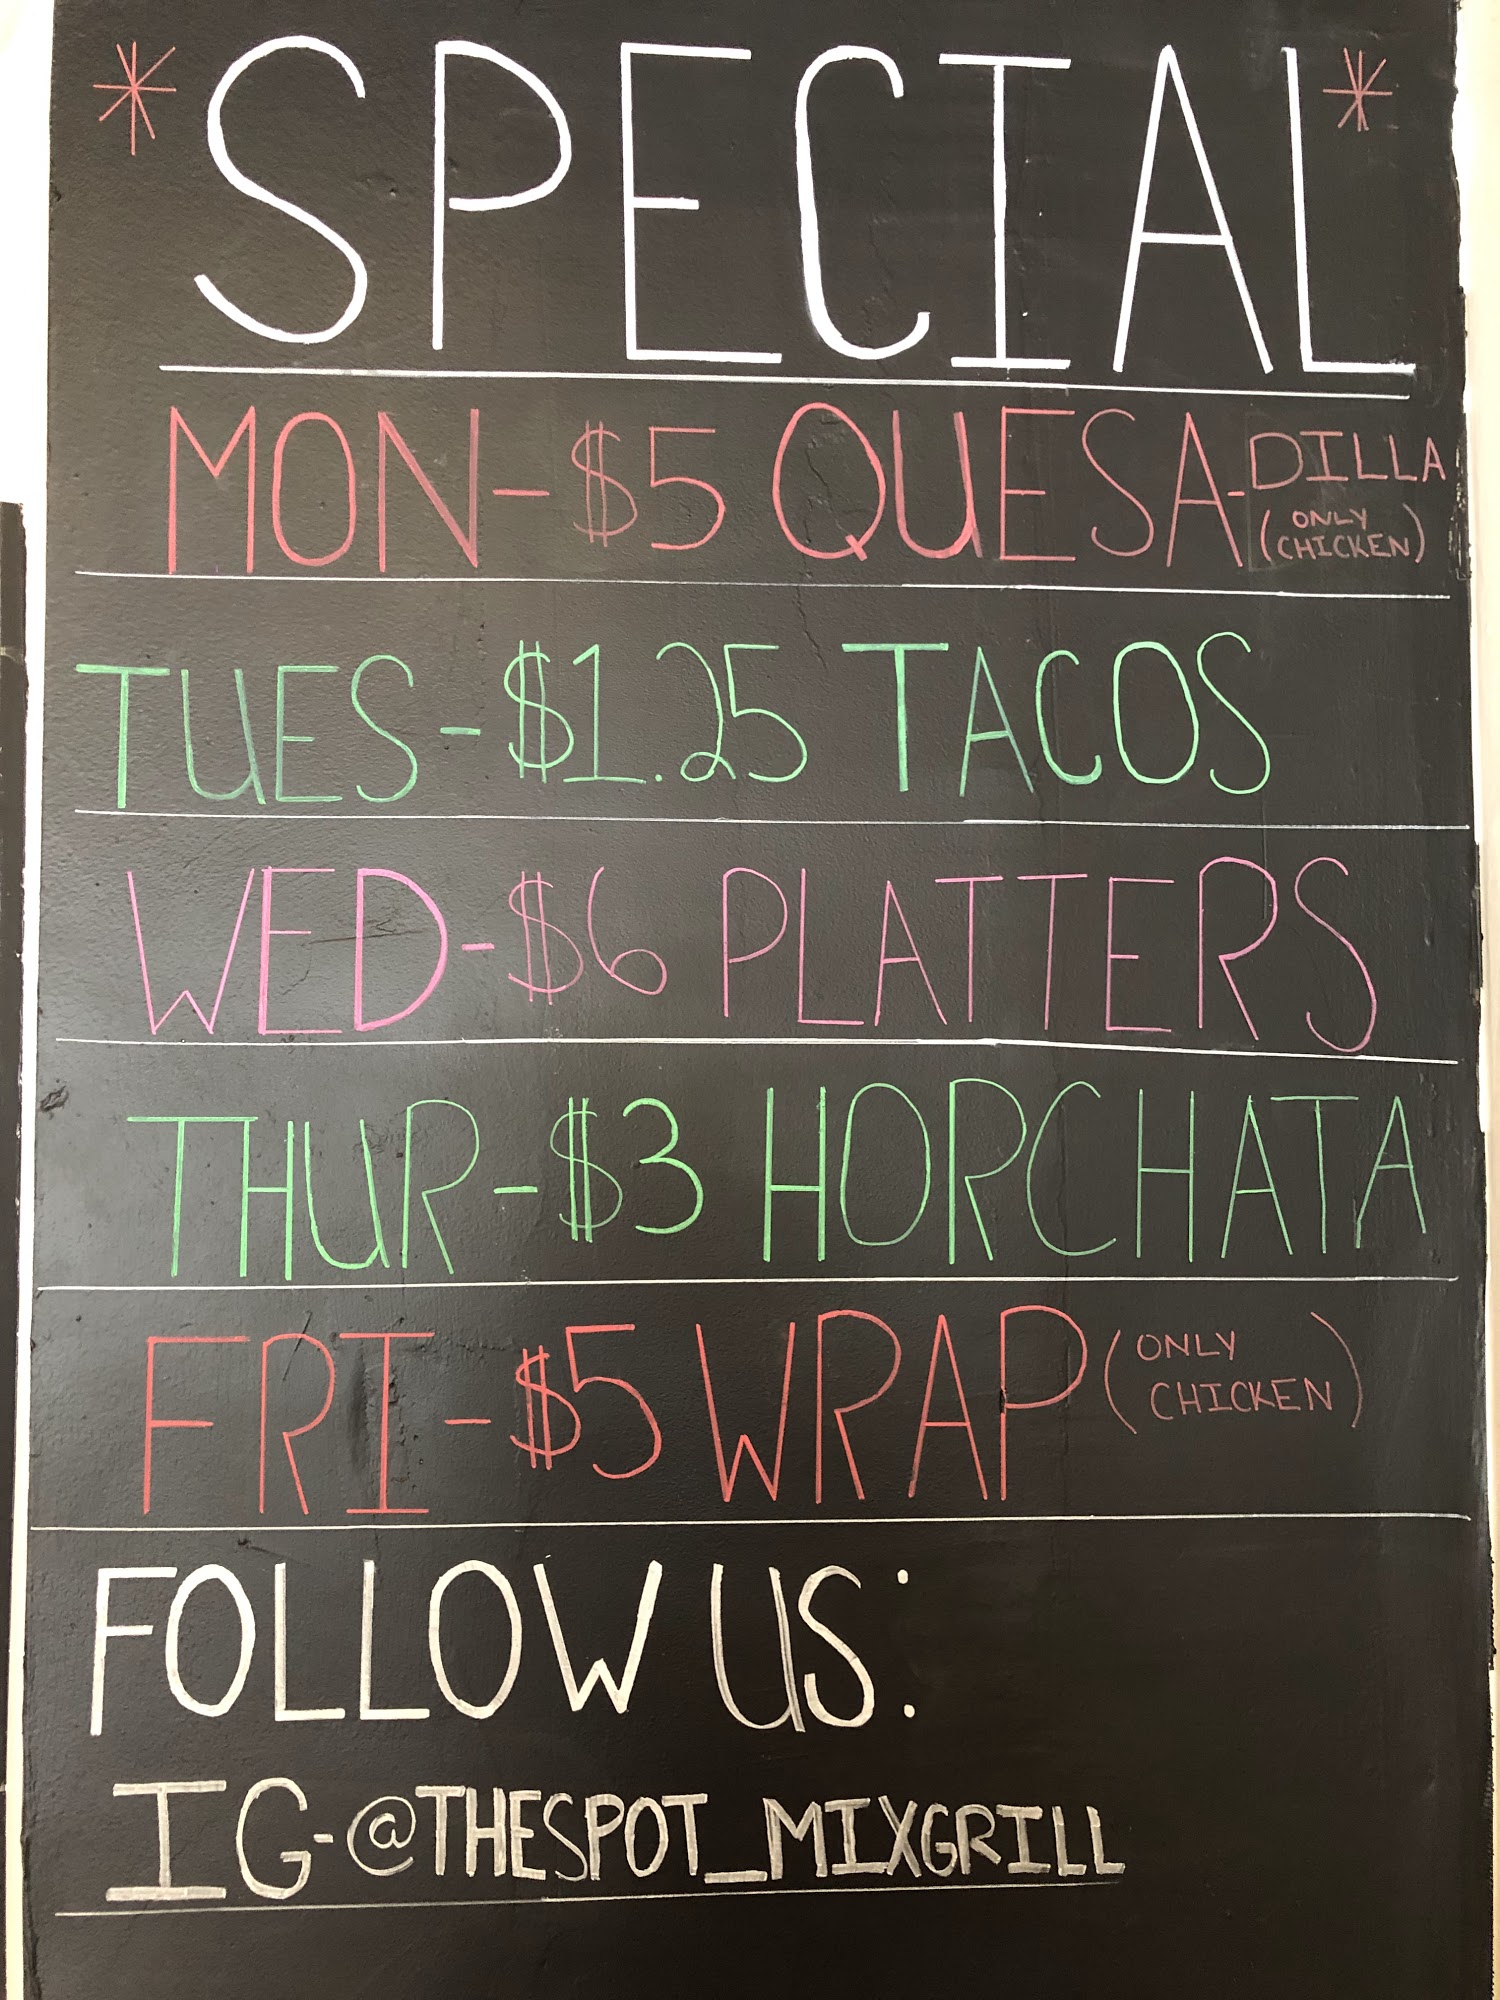 *SPECIAL*
MON-$5 QUESA-DILLA
(ONLY CHICKEN)
TUES-$1.25 TACOS
WED-$6 PLATTERS
THUR-$3 HORCHATA
FRI-$5 WRAP (ONLY CHICKEN)
FOLLOW US:
IG-@THESPOT_MIXGRILL